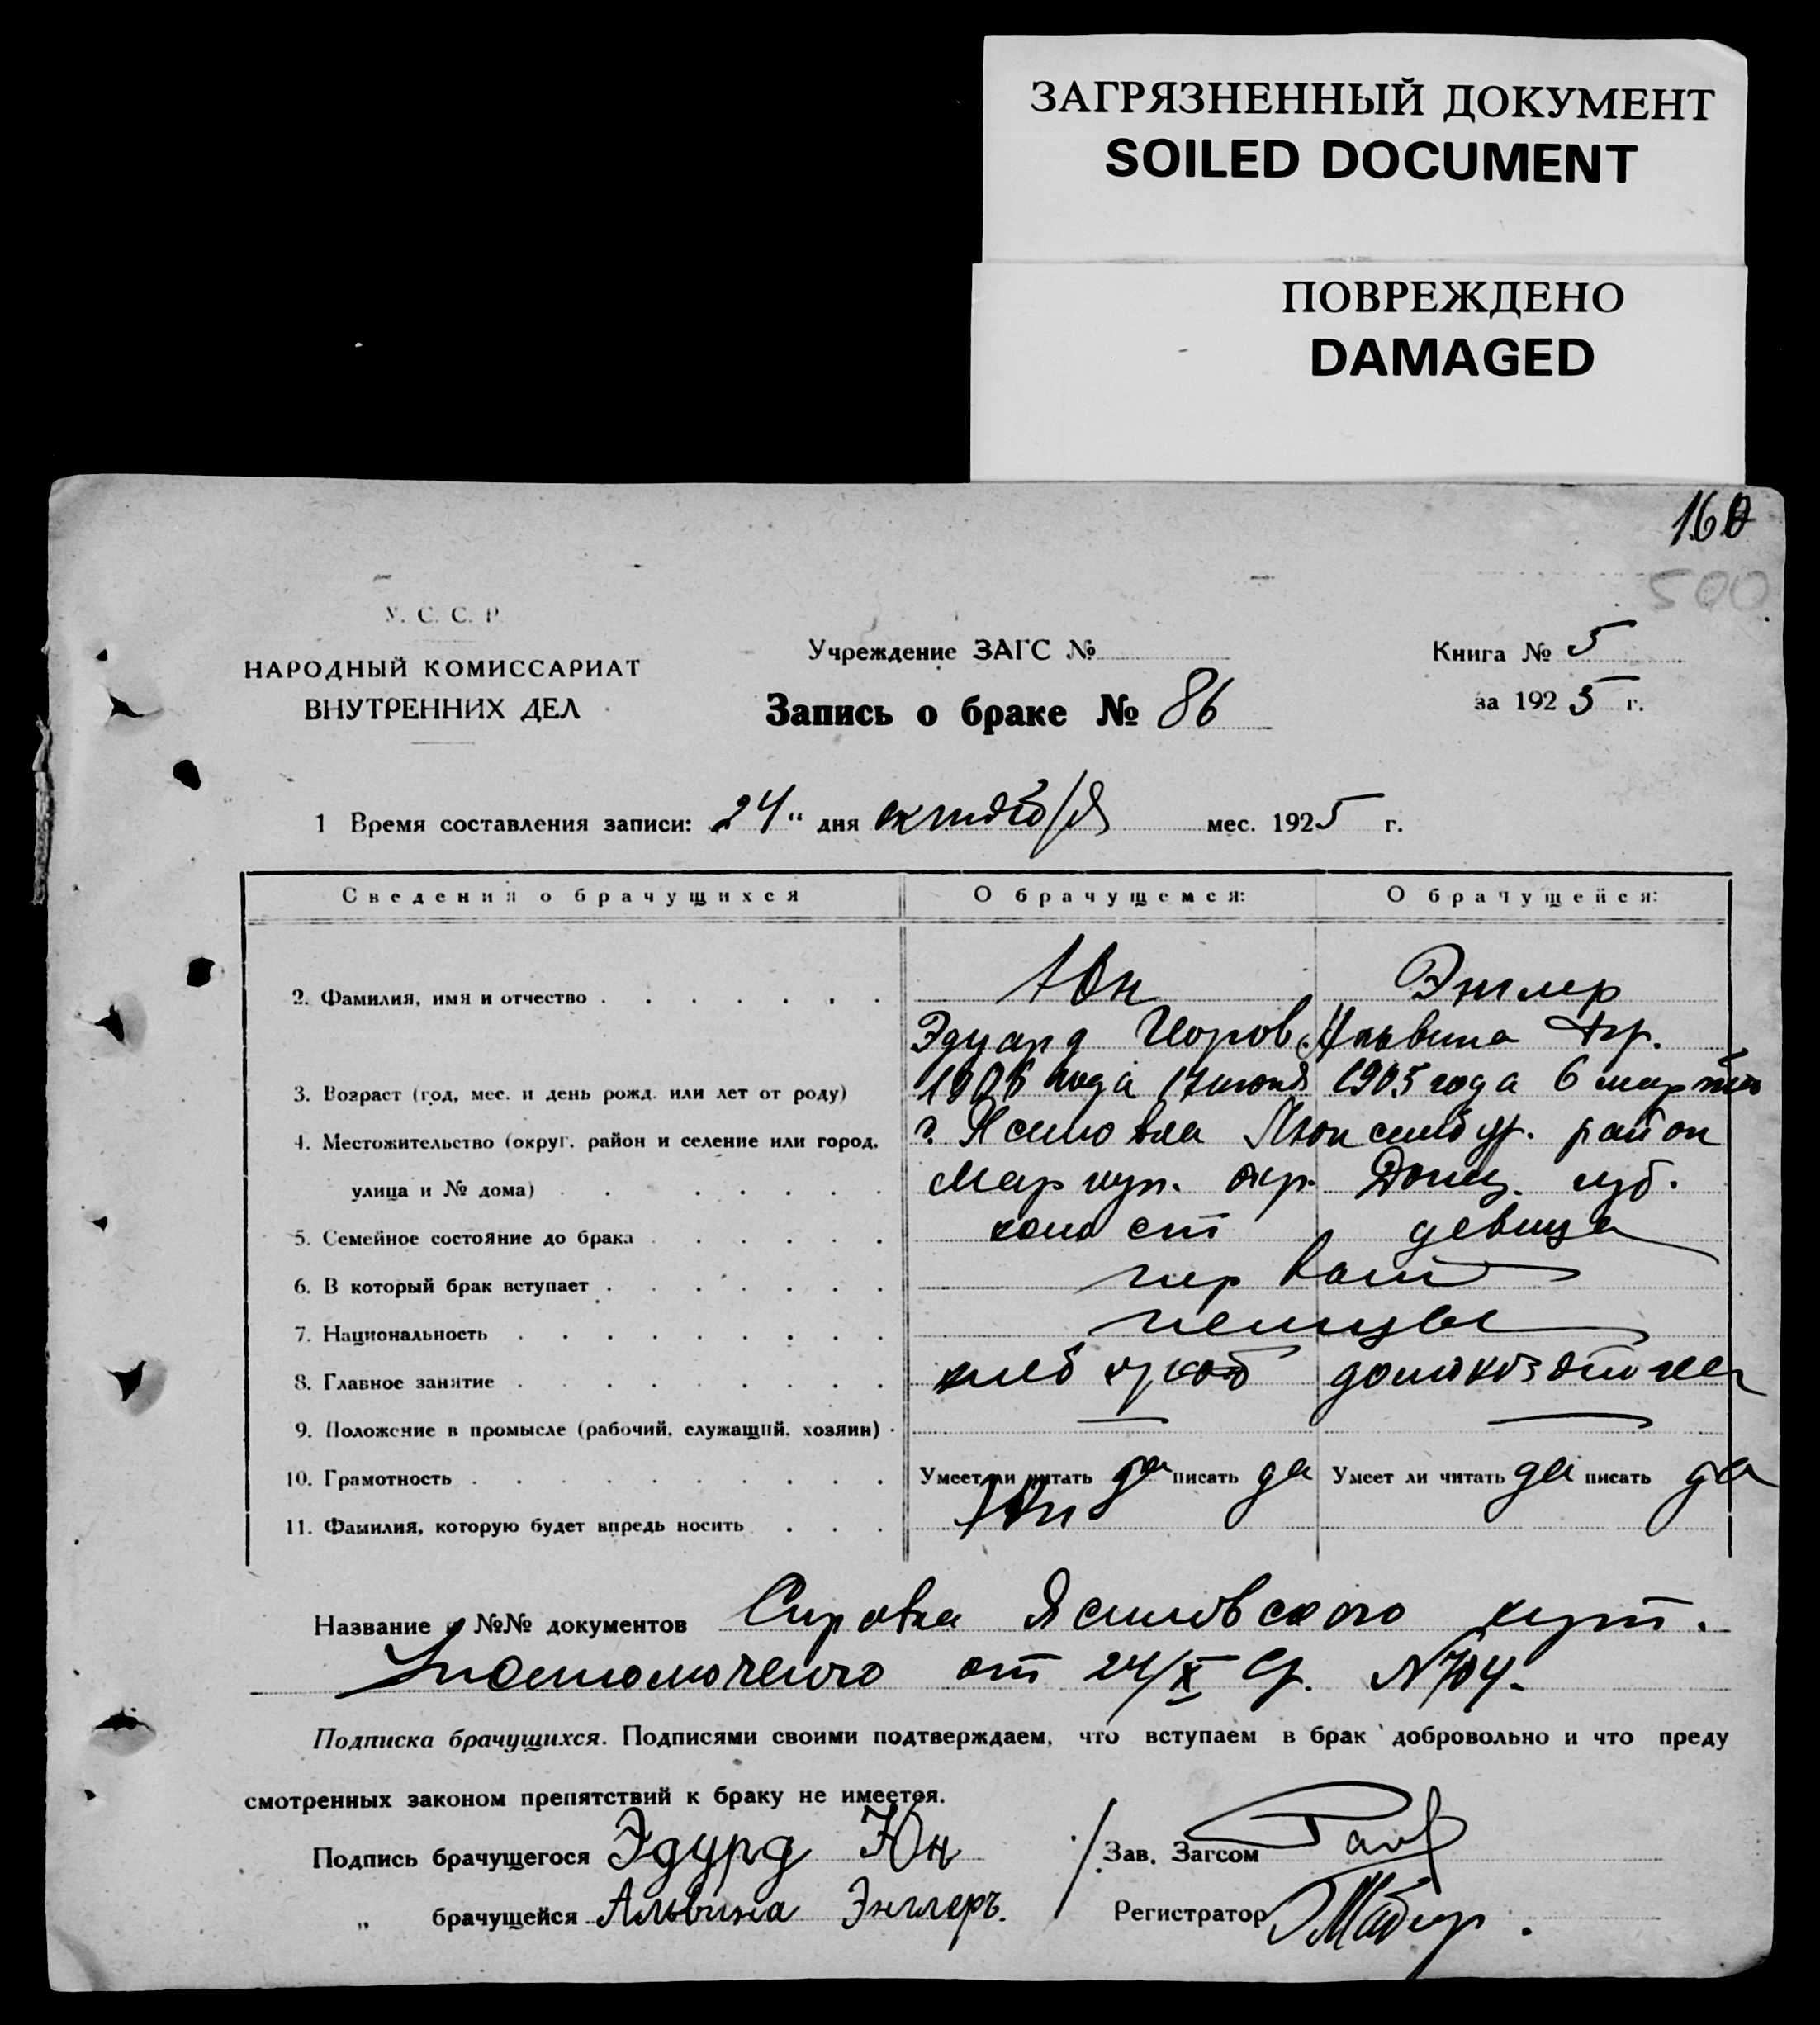 ЗАГРЯЗНЕННЫЙ ДОКУМЕНТ
SOILED DOCUMENT
ПОВРЕЖДЕНО
DAMAGED
160
500
У. С. С. Р.
НАРОДНЫЙ КОМИССАРИАТ
ВНУТРЕННИХ ДЕЛ
Учреждение ЗАГС №
Запись о браке № 86
Книга № 5
за 1925 г.
1 Время составления записи: 24" дня октября мес. 1925 г.
Сведения о брачущихся О брачущемся: О брачущейся:
2. Фамилия, имя и отчество Юн Энглер
Эдуард Игоров. Альвина
3. Возраст (год, мес. и день рожд. или лет от роду) 1906 года 17 июня 1905 года 6 марта
4. Местожительство (округ, район и селение или город, район
улица и № дома) Мариуп. окр. Донец. губ.
5. Семейное состояние до брака холост девица
6. В который брак вступает первый
7. Национальность немцы
8. Главное занятие хлебороб домохозяйка
9. Положение в промысле (рабочий, служащий, хозяин) — —
10. Грамотность Умеет ли читать да писать да Умеет ли читать да писать да
11. Фамилия, которую будет впредь носить Юн
Название и №№ документов Справка Ясиновского хут.
Уполномоченого от 24/X с/г. № 704.
Подписка брачущихся. Подписями своими подтверждаем, что вступаем в брак добровольно и что преду
смотренных законом препятствий к браку не имеется.
Подпись брачущегося Эдурд Юн Зав. Загсом
„ брачущейся Альвина Энглеръ. Регистратор